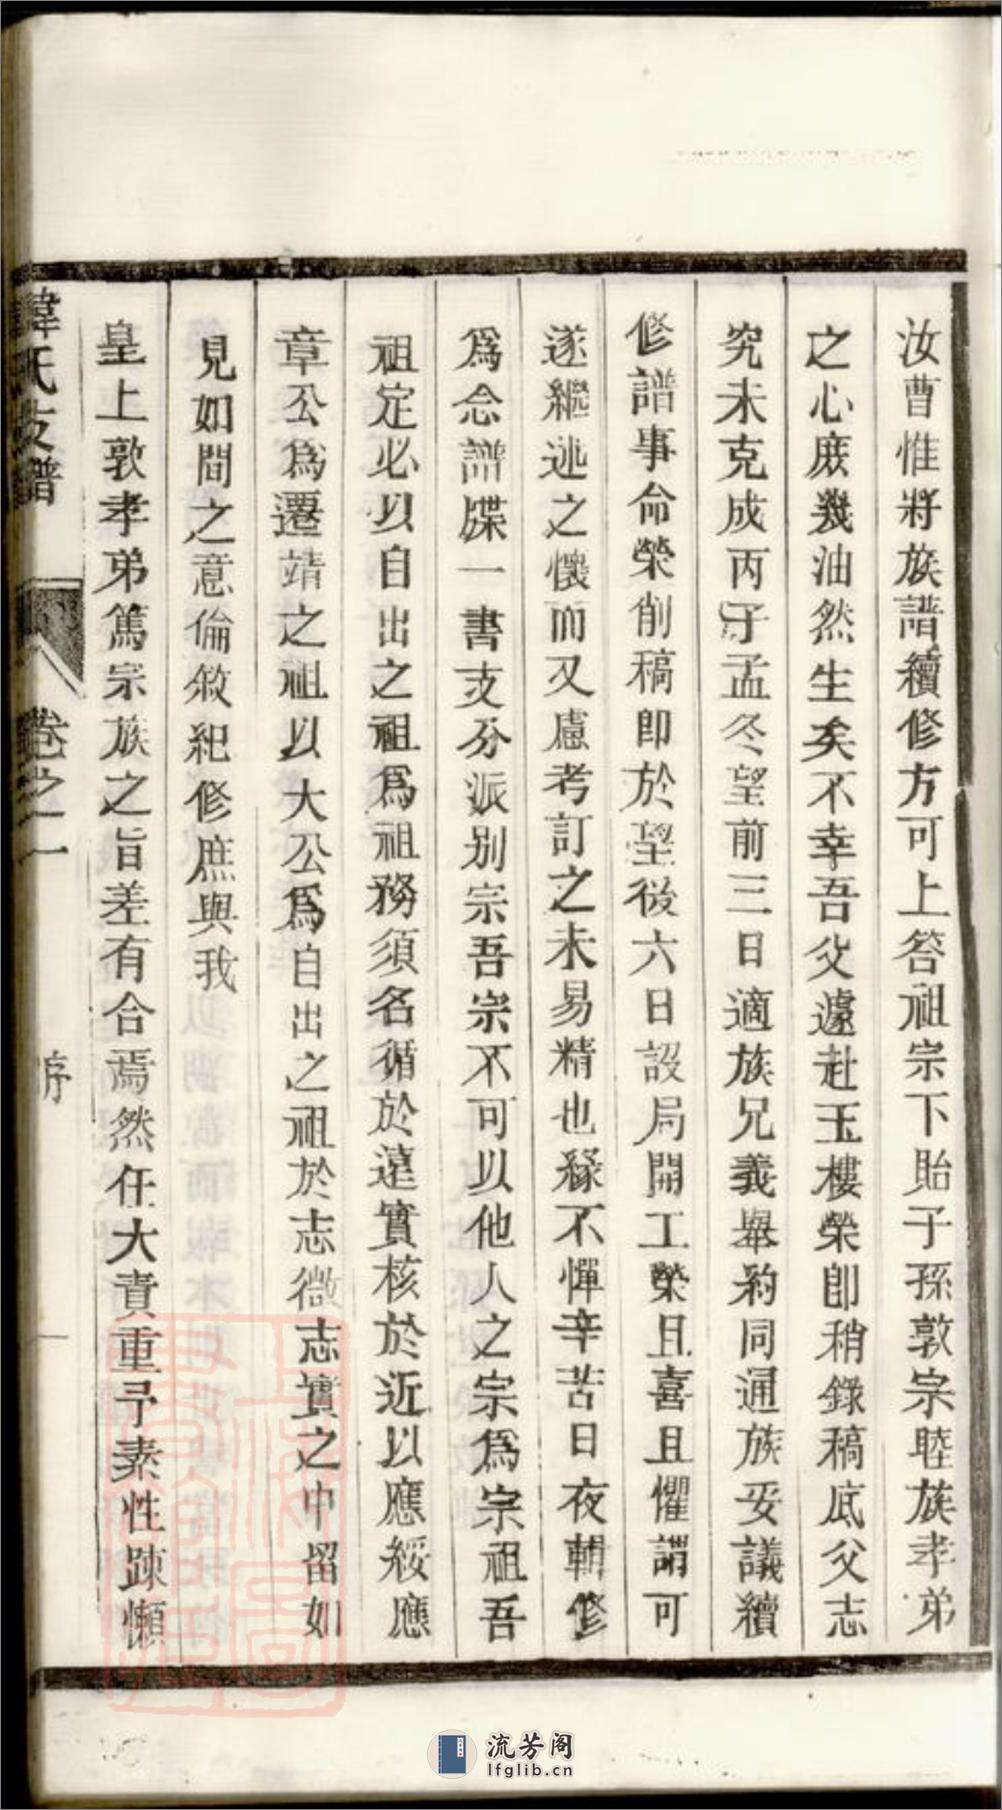 汝曹惟將族譜續修方可上答祖宗下貽子孫敦宗睦族孝弟
之心庶幾油然生矣不幸吾父遽赴玉樓榮卽稍錄稿底父志
究未克成丙子孟冬望前三日適族兄義舉約同通族妥議續
修譜事命榮削稿卽於望後六日設局開工榮且喜且懼謂可
遂繼述之懷而又慮考訂之未易精也緣不憚辛苦日夜輯修
爲念譜牒一書支分派别宗吾宗不可以他人之宗爲宗祖吾
祖定必以自出之祖爲祖務須名循於遠實核於近以應綏應
章公爲遷靖之祖以大公爲自出之祖於志微志實之中留如
見如聞之意倫敘紀修庶與我
皇上敦孝弟篤宗族之旨差有合焉然任大責重予素性踈懶
韓氏支譜
卷之一
序
一
流芳阁
lfglib.cn